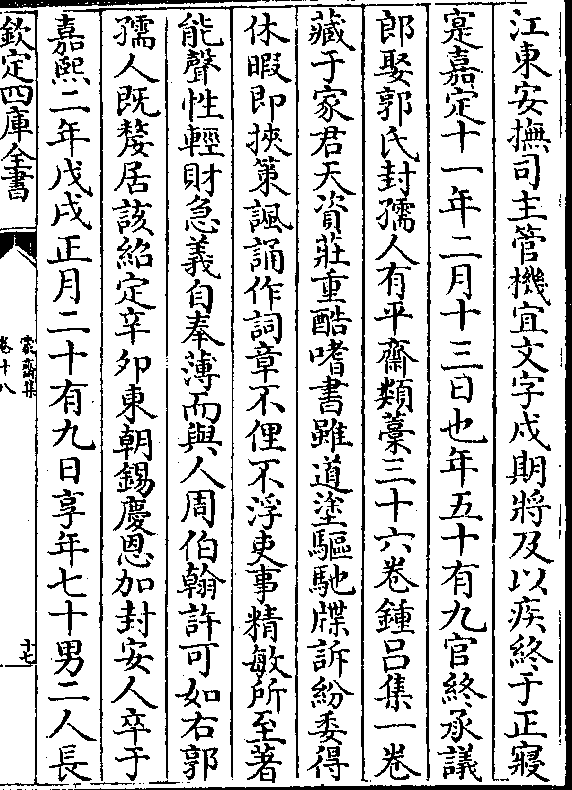 江東安撫司主管機宜文字戍期將及以疾終于正寢
寔嘉定十一年二月十三日也年五十有九官終承議
郎娶郭氏封孺人有平齋類藁三十六卷鍾呂集一卷
藏于家君天資莊重酷嗜書雖道塗驅馳牒訴紛委得
休暇即挾策諷誦作詞章不俚不浮吏事精敏所至著
能聲性輕財急義自奉薄而與人周伯翰許可如右郭
孺人既嫠居該紹定辛卯東朝錫慶恩加封安人卒于
嘉熙二年戊戌正月二十有九日享年七十男二人長
欽定四庫全書
蒙齋集
卷十八
十七